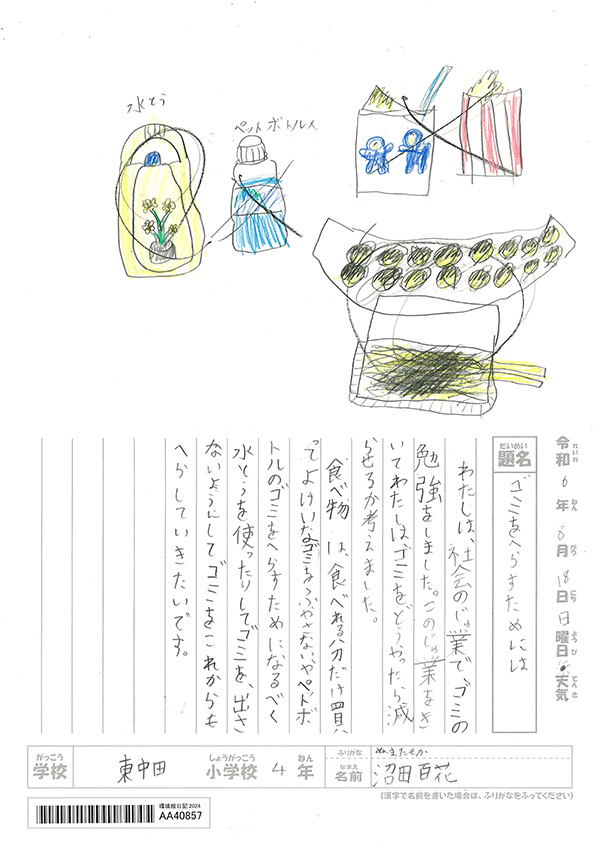 水とう
ペットボトル
令和6年8月18日日曜日 天気
れいわ ねん がつ にち ようび てんき
だいめい
題名
ゴミをへらすためには
わたしは、社会のじゅ業で、ゴミの
勉強をしました。このじゅ業をき
いてわたしはゴミをどうやったら減
らせるか考えました。
食べ物は、食べれる分だけ買
ってよけいなゴミをふやさないやペットボ
トルのゴミをへらすためになるべく
水とうを使ったりしてゴミを、出さ
ないようにしてゴミをこれからも
へらしていきたいです。
がっこう しょうがっこう ねん
学校 東中田 小学校 4年
ふりがな ぬまたももか
なまえ
名前 沼田百花
(漢字で名前を書いた場合は、ふりがなをふってください)
環境絵日記2024
AA40857